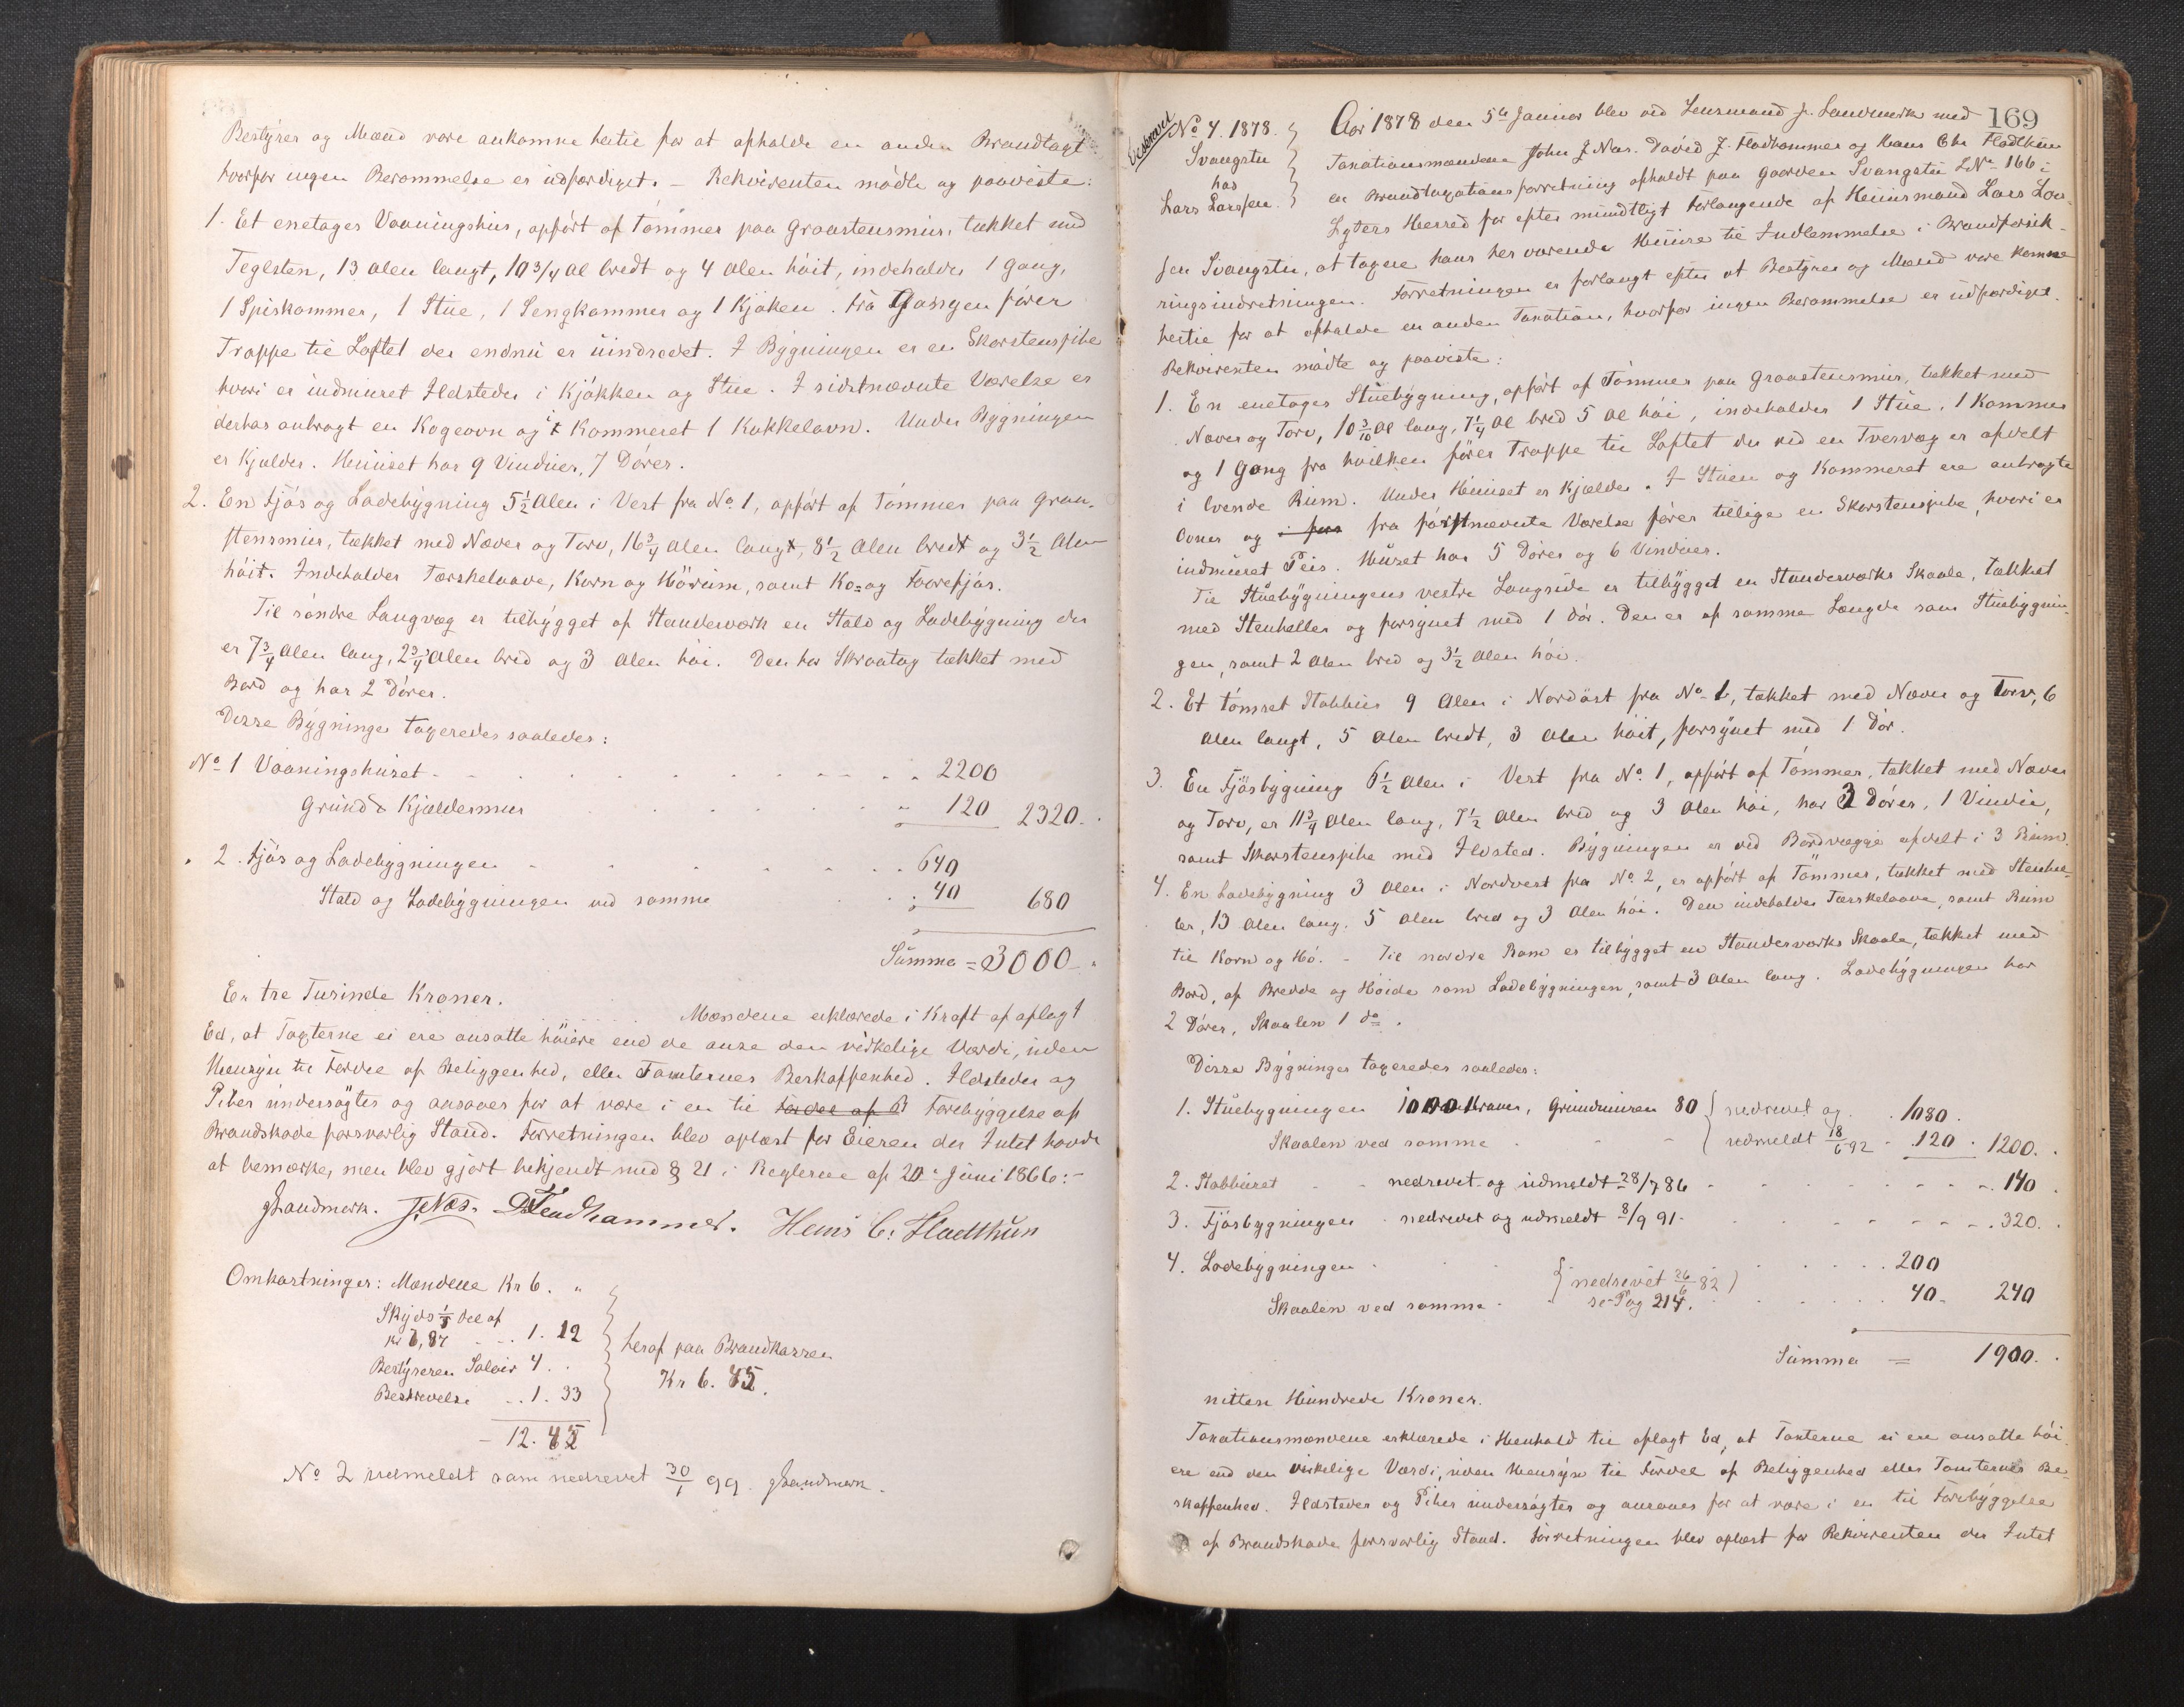 Bestÿrer og Mænd vare ankomne hertil for at afholde en anden Brandtaxt
hvorfor ingen Berammelse er udfærdiget. – Rekvirenten mødte og paaviste:
1. Et enetages Vaaningshus, opført af Tømmer paa Graastensmur, tækket med
Teglsten, 13 Alen langt, 10 3/4 Al bredt og 4 Alen høit, indeholder 1 Gang,
1 Spiskammer, 1 Stue, 1 Sengkammer og 1 Kjøken. Fra Gangen fører
Trappe til Loftet der endnu er uindredet. I Bÿgningen er en Skorstenspibe
hvori er indmuret Ildsteder i Kjøkken og Stue. I sidstnævnte Værelse er
derhos anbragt en Kogeovn og i Kammeret 1 Kakkelovn. Under Bygningen
er Kjælder. Huset har 9 Vinduer, 7 Døre.
2. En Fjøs og Ladebÿgning 5 1/2 Alen i Vest fra No 1, opført af Tømmer paa Graa-
stensmur, tækket med Næver og Torv, 16 3/4 Alen langt, 8 1/2 Alen bredt og 3 1/2 Alen
høit. Indeholder Tærskelaave, Korn og Hørum, samt Ko= og Faarefjøs.
Til søndre Langvæg er tilbÿgget af Standerværk en Stald og Ladebÿgning der
er 7 3/4 Alen lang, 2 3/4 Alen bred og 3 Alen høi. Den har Skraatag tækket med
Bord og har 2 Døre.
Disse Bÿgninger taxeredes saaledes:
No 1 Vaaningshuset . . . 2200
Grund & Kjældermur . . . 120 2320.
" 2. Fjøs og Ladebygningen . . . 640
Stald og Ladebÿgningen ved samme . . . 40 680
Summa = 3000.
Er tre Tusinde Kroner.
Mændene erklærede i Kraft af aflagt
Ed, at Taxterne ei ere ansatte høiere end de anse den virkelige Værdi, uden
Hensyn til Fordel af Beliggenhed, eller Tomternes Beskaffenhed. Ildsteder og
Piber undersøgtes og ansaaes for at være i en til Fordel af B Forebÿggelse af
Brandskade forsvarlig Stand. Forretningen blev oplæst for Eieren der Intet havde
at bemærke, men blev gjort bekjendt med § 21 i Reglerne af 20de Juni 1866:–
JSandmerk. J. Næs. D. Fladhammer. Hans C. Fladthun
Omkostninger: Mændene Kr 6. "
Skÿds 1/5 Del af
Kr , 87 . . 1. 12
Bestyreren Salair 4. .
Beskrivelse . . 1. 33
12. 45
heraf paa Brandkassen
Kr 6. 45.
No 2 udmeldt som nedrevet 30/1 99. JSandmerk.
169
No 4. 1878.
Svangstu
hos
Lars Larssen.
Aar 1878 den 5te Januar blev ved Lensmand J. Sandmerk med
Taxationsmændene John J Næs. David J. Fladhammer og Hans Chr Fladthun
en Brandtaxationsforretning afholdt paa Gaarden Svangstu LNo 166 i
Lyters Herred for efter mundtligt Forlangende af Huusmand Lars Lar-
sen Svangstu, at taxere hans her værende Huuse til Indlemmelse i Brandforsik-
ringsindretningen. Forretningen er forlangt efter at Bestyrer og Mænd vare komne
hertil for at afholde en anden Taxation, hvorfor ingen Berammelse er udfærdiget.
Rekvirenten mødte og paaviste:
1. En enetages Stuebÿgning, opført af Tømmer paa Graastensmur, tækket med
Næver og Torv, 10 3/10 Al lang, 7 1/4 Al bred 5 Al høi, indeholder 1 Stue, 1 Kammer
og 1 Gang fra hvilken fører Trappe til Loftet der ved en Tvervæg er afdelt
i tvende Rum. Under Huuset er Kjælder. I Stuen og Kammeret ere anbragte
Ovner og fra førstnævnte Værelse fører tillige en Skorstenspibe, hvori er
indmuret Peis. Huset har 5 Døre og 6 Vinduer.
Til Stuebÿgningens vestre Langside er tilbÿgget en Standerværks Skaale, tækket
med Stenheller og forsynet med 1 Dør. Den er af samme Længde som Stuebygnin-
gen, samt 2 Alen bred og 3 1/2 Alen høi.
2. Et tømret Stabbur 9 Alen i Nordøst fra No 1, tækket med Næver og Torv, 6
Alen langt, 5 Alen bredt, 3 Alen høit, forsÿnet med 1 Dør.
3. En Fjøsbygning 6 1/2 Alen i Vest fra No. 1, opført af Tømmer, tækket med Næver
og Torv, er 11 3/4 Alen lang, 7 1/2 Alen bred og 3 Alen høi, har 3 Døre, 1 Vindu,
samt Skorstenspibe med Ildsted. Bÿgningen er ved Bordvægge afdelt i 3 Rum.
4. En Ladebÿgning 3 Alen i Nordvest fra No. 2, er opført af Tømmer, tækket med Stenhel-
ler, 13 Alen lang, 5 Alen bred og 3 Alen høi. Den indeholder Tærskelaave, samt Rum
til Korn og Hø. – Til nordre Ram er tilbÿgget en Standerværks Skaale, tækket med
Bord, af Bredde og Høide som Ladebÿgningen, samt 3 Alen lang. Ladebÿgningen har
2 Døre, Skaalen 1 do.
Disse Bÿgninger taxeredes saaledes:
1. Stuebygningen 1000 Kroner, Grundmuren 80 { nedrevet og . . 1080.
Skaalen ved samme . . . { udmeldt 18/6 92 . 120 . 1200.
2. Stabburet . . nedrevet og udmeldt 28/7 86 . . . 140.
3. Fjøsbygningen . nedrevet og udmeldt 8/9 91 . . . 320.
4. Ladebygningen . . . 200
{ nedrevet 26/6 82 )
Skaalen ved samme . . se Pag 214. . . . 40. 240
Summa = 1900.
nitten Hundrede Kroner.
Taxationsmændene erklærede i Henhold til aflagt Ed, at Taxterne ei ere ansatte høi-
ere end den virkelige Værdi, uden Hensÿn til Fordel af Beliggenhed eller Tomternes Be-
skaffenhed. Ildsteder og Piber undersøgtes og ansaaes for at være i en til Forebÿggelse
af Brandskade forsvarlig Stand. Forretningen blev oplæst for Rekvirenten der Intet